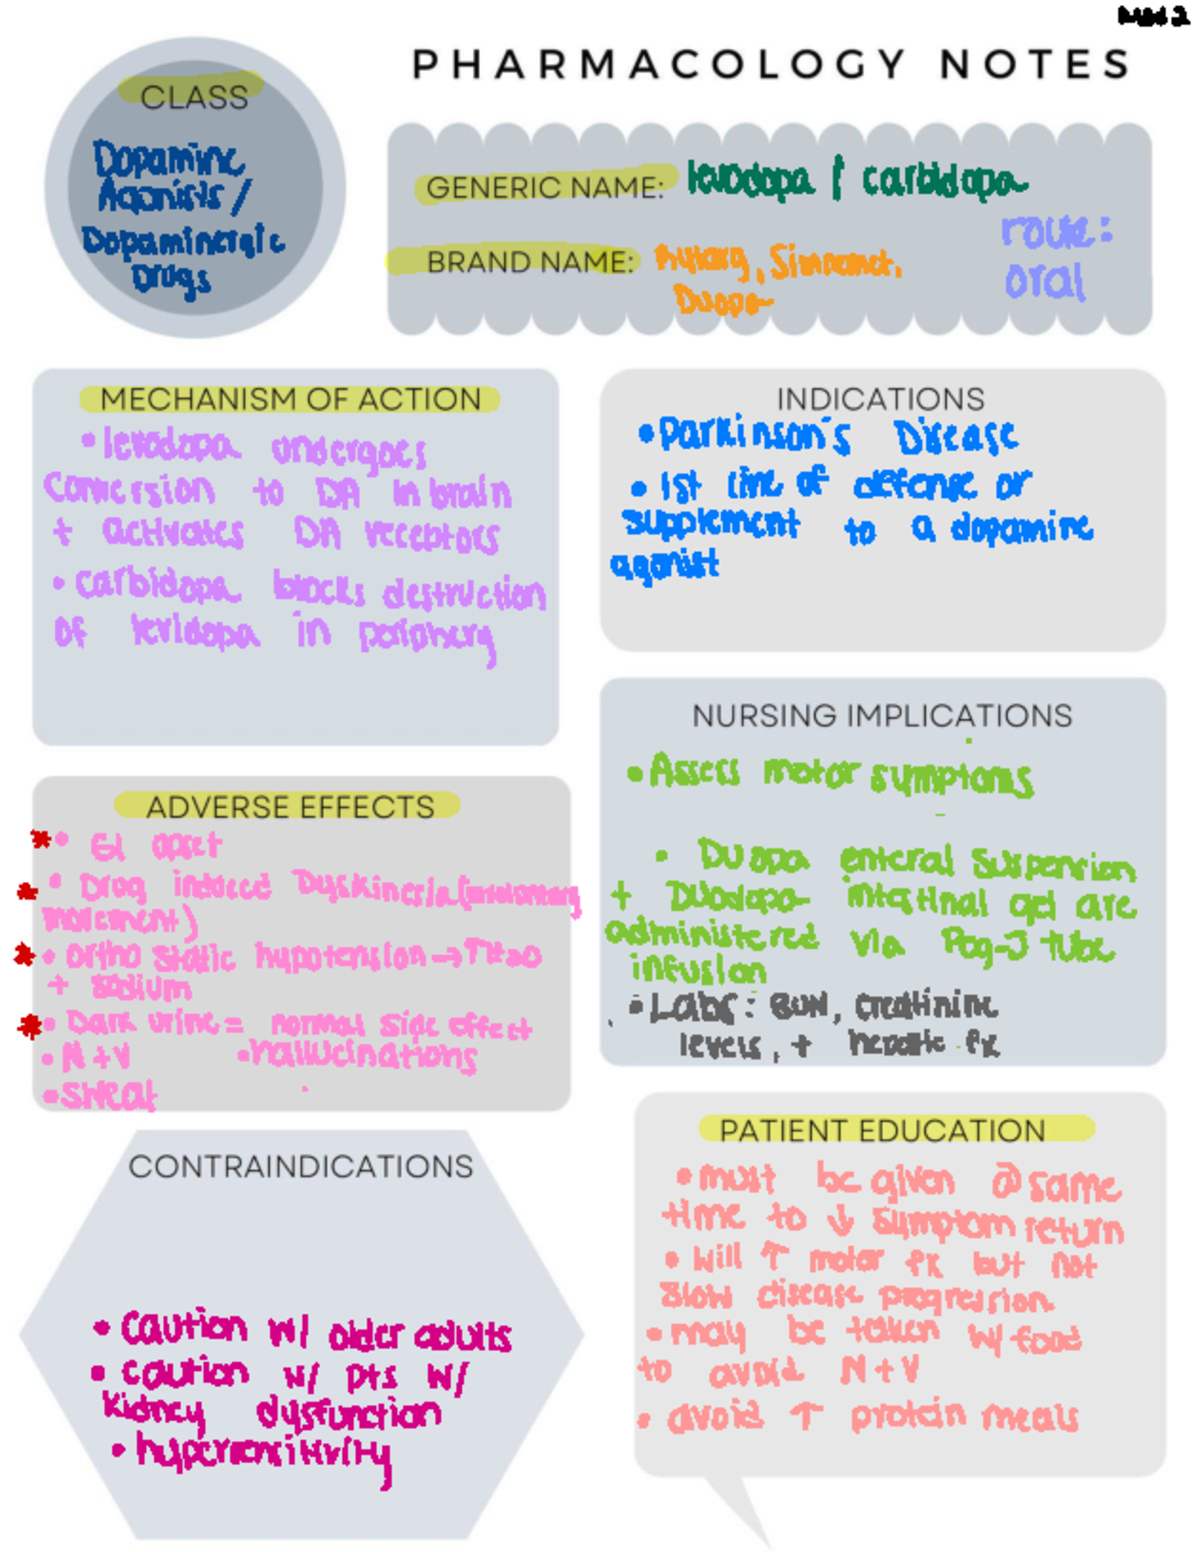 Med 2
PHARMACOLOGY NOTES
CLASS
Dopamine
Agonists /
Dopaminergic
Drugs
GENERIC NAME: levodopa / carbidopa
BRAND NAME: Rytary, Sinemet,
Duopa
route:
oral
MECHANISM OF ACTION
• levodopa undergoes
conversion to DA in brain
+ activates DA receptors
• carbidopa blocks destruction
of levidopa in periphery
INDICATIONS
• Parkinson's Disease
• 1st line of defense or
supplement to a dopamine
agonist
NURSING IMPLICATIONS
• Assess motor symptoms
• Duopa enteral suspension
+ Duodopa intestinal gel are
administered via Peg-J tube
infusion
• Labs: BUN, creatinine
levels, + hepatic fx
ADVERSE EFFECTS
* • GI upset
* • Drug induced Dyskinesia (involuntary
movement)
* • ortho static hypotension → ↑ H2O
+ sodium
* • Dark urine = normal side effect
• N + V • hallucinations
• sweat
CONTRAINDICATIONS
• caution w/ older adults
• caution w/ pts w/
kidney dysfunction
• hypersensitivity
PATIENT EDUCATION
• must be given @ same
time to ↓ symptom return
• will ↑ motor fx but not
slow disease progression
• may be taken w/ food
to avoid N + V
• avoid ↑ protein meals